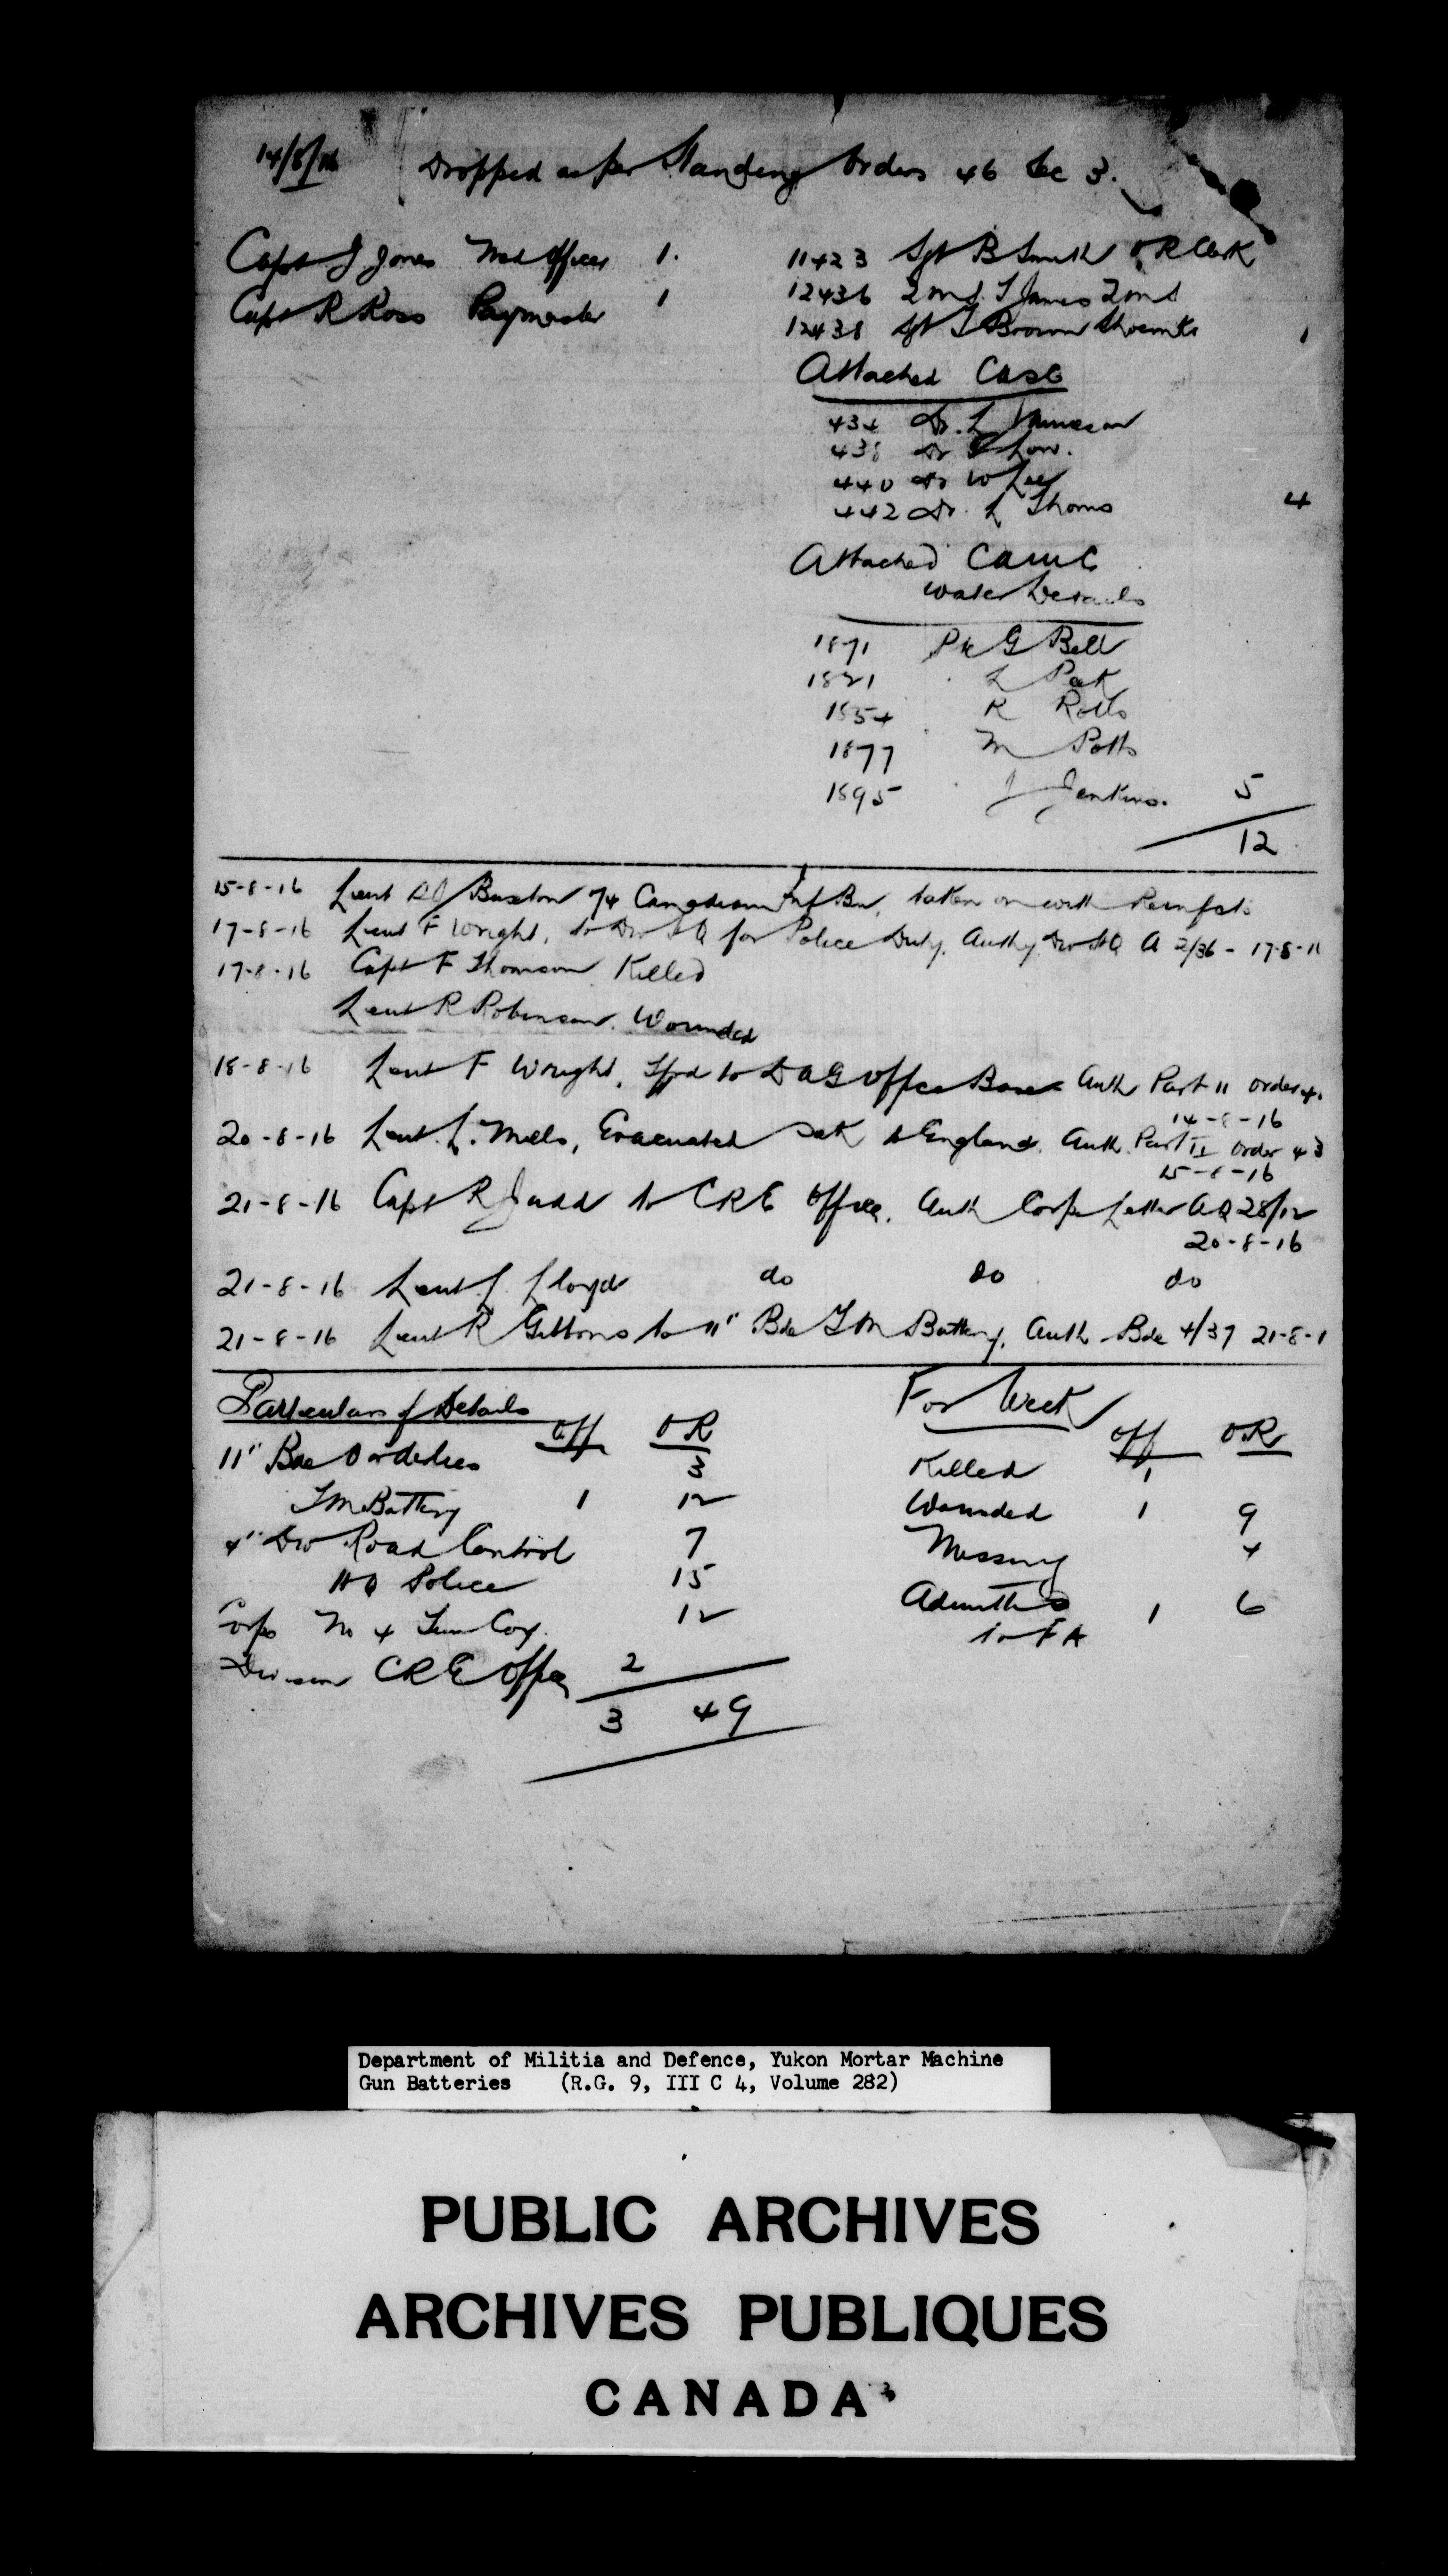 14/8/16 Dropped as per Standing Orders 46 Sec 3.
Capt J Jones Med Officer 1.
Capt R Ross Paymaster 1
11423 Sgt B Smith O R Clerk
12436 2 m S. T James 2 m S
12438 Sgt T Brown Shoemkr 1
Attached CASC
434 Dr. L
438 Dr Low.
440 Dr W Lee
442 Dr. L Thoms 4
Attached CAMC
Water Details
1871 Pte G Bell
1821 L Peek
1854 R Rolls
1877 M Potts
1895 J Jenkins. 5
12
15-8-16 Lieut Buxton 74 Canadian Inf Bn, taken on with Reinfcts
17-8-16 Lieut F Wright, to Div H Q for Police Duty. Authy Div HQ A 2/36 - 17-8-16
17-8-16 Capt F Thomson Killed
Lieut R Robinson. Wounded
18-8-16 Lieut F Wright, Tfrd to D A G Office Base Auth Part 11 order 41
14-8-16
20-8-16 Lieut. L. Mells, Evacuated Sick to England. Auth. Part II order 43
15-8-16
21-8-16 Capt R Judd to C R E Office. Auth Corps Letter A Q 28/12
20-8-16
21-8-16 Lieut. L. Lloyd do do do
21-8-16 Lieut R Gibbons to 11" Bde T M Battery. Auth Bde 4/37 21-8-1
Particulars of Details
Off O R
11" Bde Orderlies 3
T M Battery 1 12
4" Div Road Control 7
H Q Police 15
Corps No 4 Tunn Coy. 12
Division C R E Office 2
3 49
For Week
Off O.R.
Killed 1
Wounded 1 9
Missing 4
Admitted 1 6
to F A
Department of Militia and Defence, Yukon Mortar Machine
Gun Batteries (R.G. 9, III C 4, Volume 282)
PUBLIC ARCHIVES
ARCHIVES PUBLIQUES
CANADA